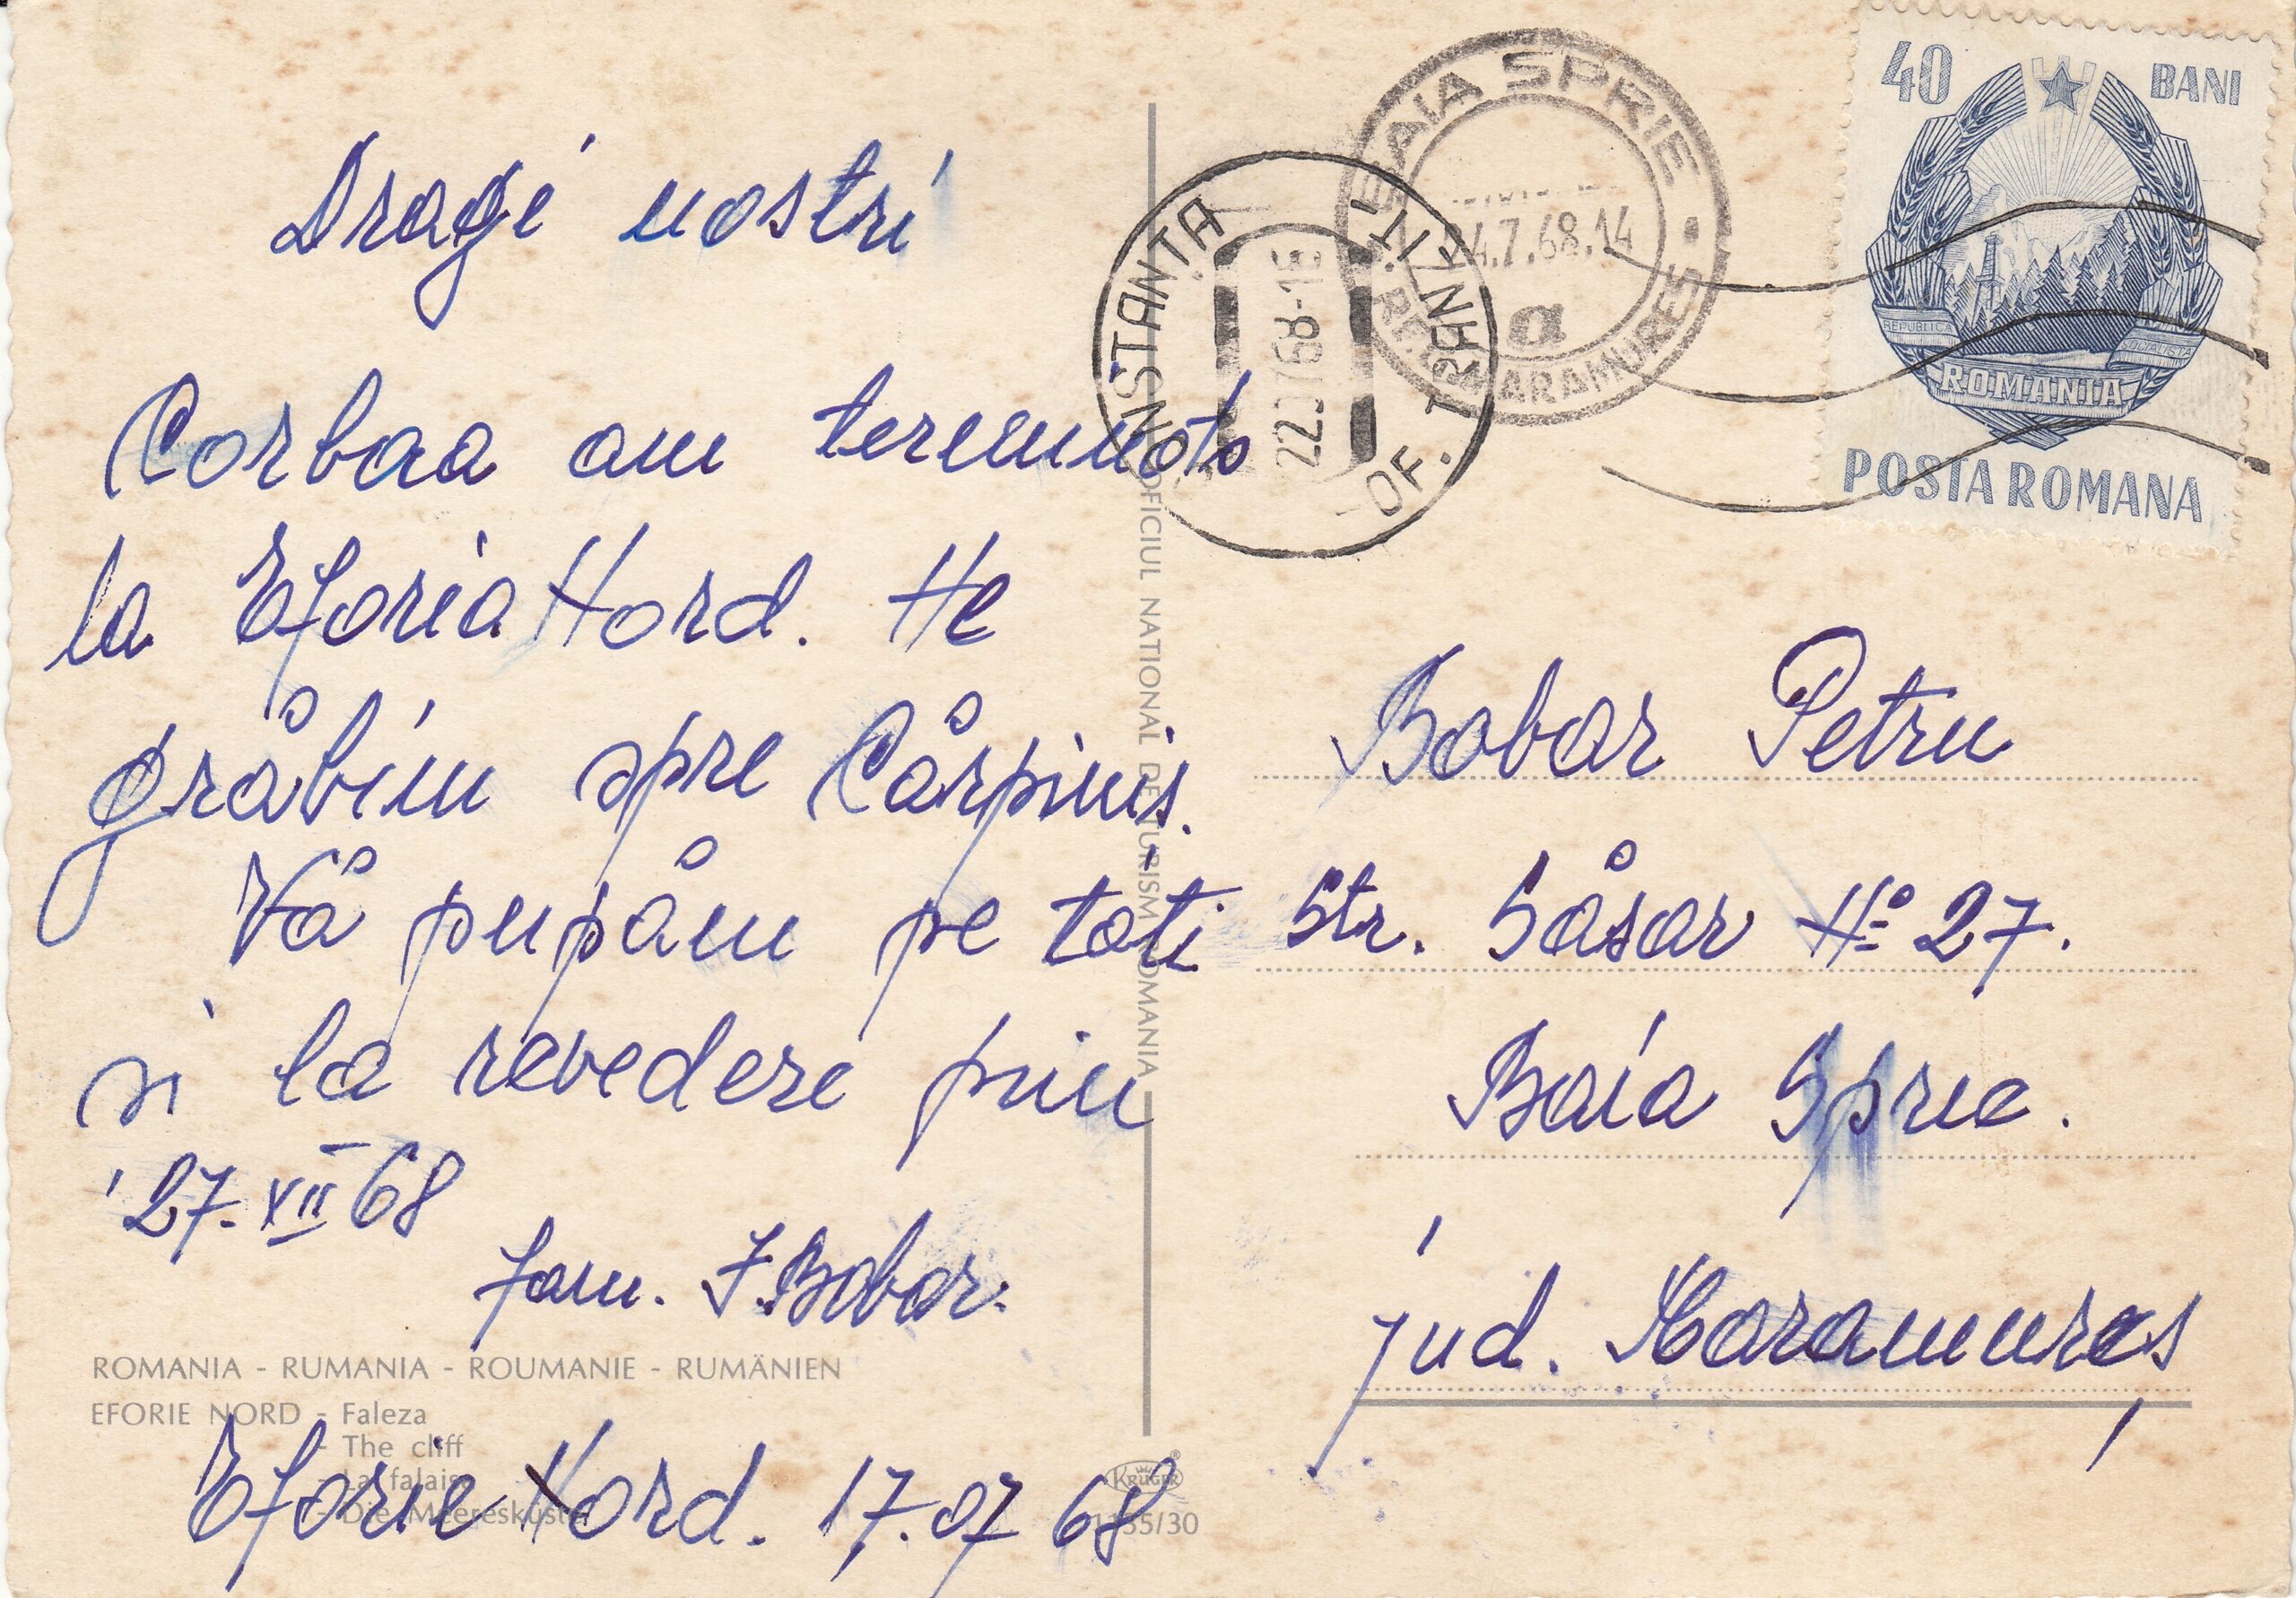 Dragi nostri
Corbaa am terminoto
la Eforia Nord. Ne
grăbim spre Cărpinis.
Vă pupăm pe toti
si la revedere prin
27. VII 68
fam. I. Bobar.
ROMANIA - RUMANIA - ROUMANIE - RUMÄNIEN
EFORIE NORD - Faleza
- The cliff
- La falaise
- Die Meeresküste
Eforie Nord. 17.07 68
KRÜGER
1155/30
OFICIUL NATIONAL DE TURISM ROMANIA
CONSTANTA
22 7 68-15
OF. TRANZIT.
BAIA SPRIE
24.7.68.14
a
REG. MARAMURES
40 BANI
REPUBLICA SOCIALISTA
ROMANIA
POSTA ROMANA
Bobar Petru
Str. Săsar No 27.
Baia Sprie.
jud. Maramureș